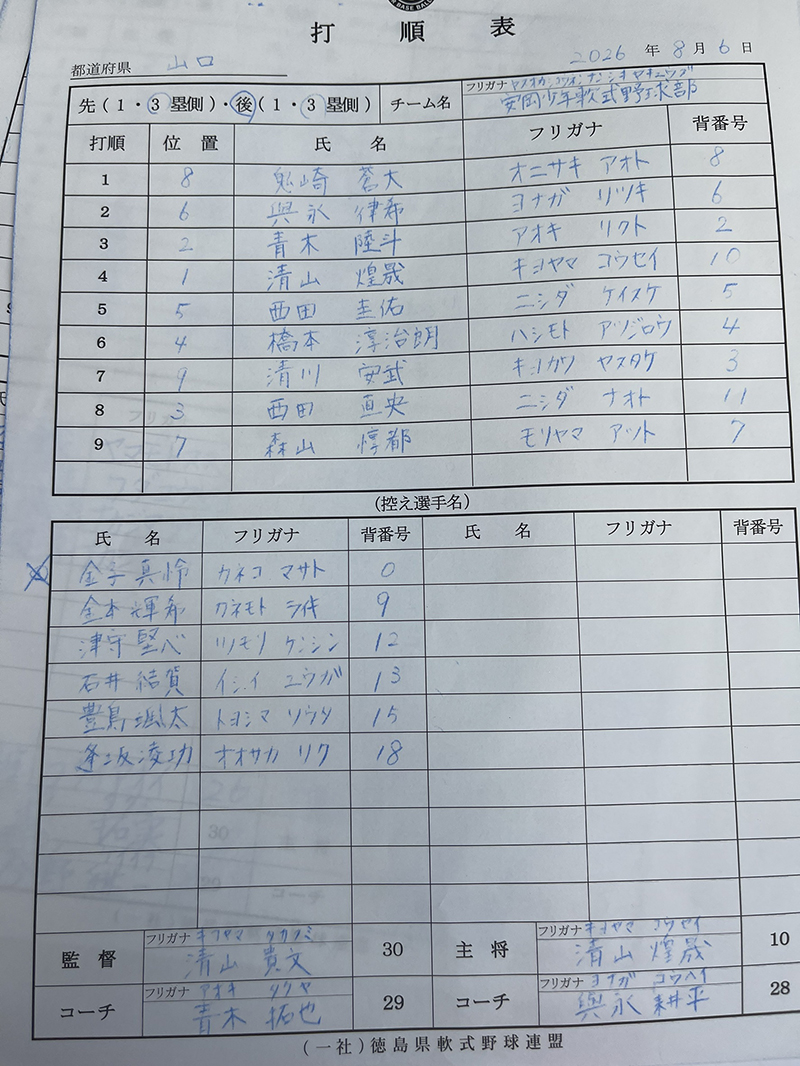 BASE BALL
打順表
都道府県 山口 2026年8月6日
先(1・3塁側)・後(1・3塁側) チーム名 フリガナ
安岡少年軟式野球部
打順 位置 氏名 フリガナ 背番号
1 8 鬼崎 蒼大 オニサキ アオト 8
2 6 與永 律希 ヨナガ リツキ 6
3 2 青木 陸斗 アオキ リクト 2
4 1 清山 煌晟 キヨヤマ コウセイ 10
5 5 西田 圭佑 ニシダ ケイスケ 5
6 4 橋本 淳治朗 ハシモト アツジロウ 4
7 9 清川 安武 キヨカワ ヤスタケ 3
8 3 西田 直央 ニシダ ナオト 11
9 7 森山 惇都 モリヤマ アツト 7
(控え選手名)
氏名 フリガナ 背番号 氏名 フリガナ 背番号
金子 真怜 カネコ マサト 0
金本 輝希 カネモト 9
津守 堅心 ツノモリ ケンシン 12
石井 結賀 イシイ ユウガ 13
豊島 颯太 トヨシマ ソウタ 15
逢坂 凌功 オオサカ リク 18
監督 フリガナ キヨヤマ タカフミ 清山 貴文 30 主将 フリガナ キヨヤマ コウセイ 清山 煌晟 10
コーチ フリガナ アオキ タクヤ 青木 拓也 29 コーチ フリガナ ヨナガ コウヘイ 與永 耕平 28
(一社)徳島県軟式野球連盟